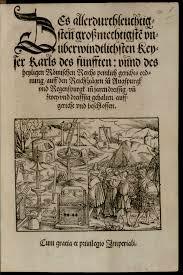 Des allerdurchleuchtig
sten großmechtigstē vn
überwindtlichsten Key
ser Karls des fünfften: vnnd des
heyligen Römischen Reichs peinlich gerichts ord
nung, auff den Reichstägen zů Augspurg
vnd Regenspurgk, in jaren dreissig, vñ
zwey vnd dreissig gehalten, auff
gericht vnd beschlossen.
Cum gratia et priuilegio Imperiali.